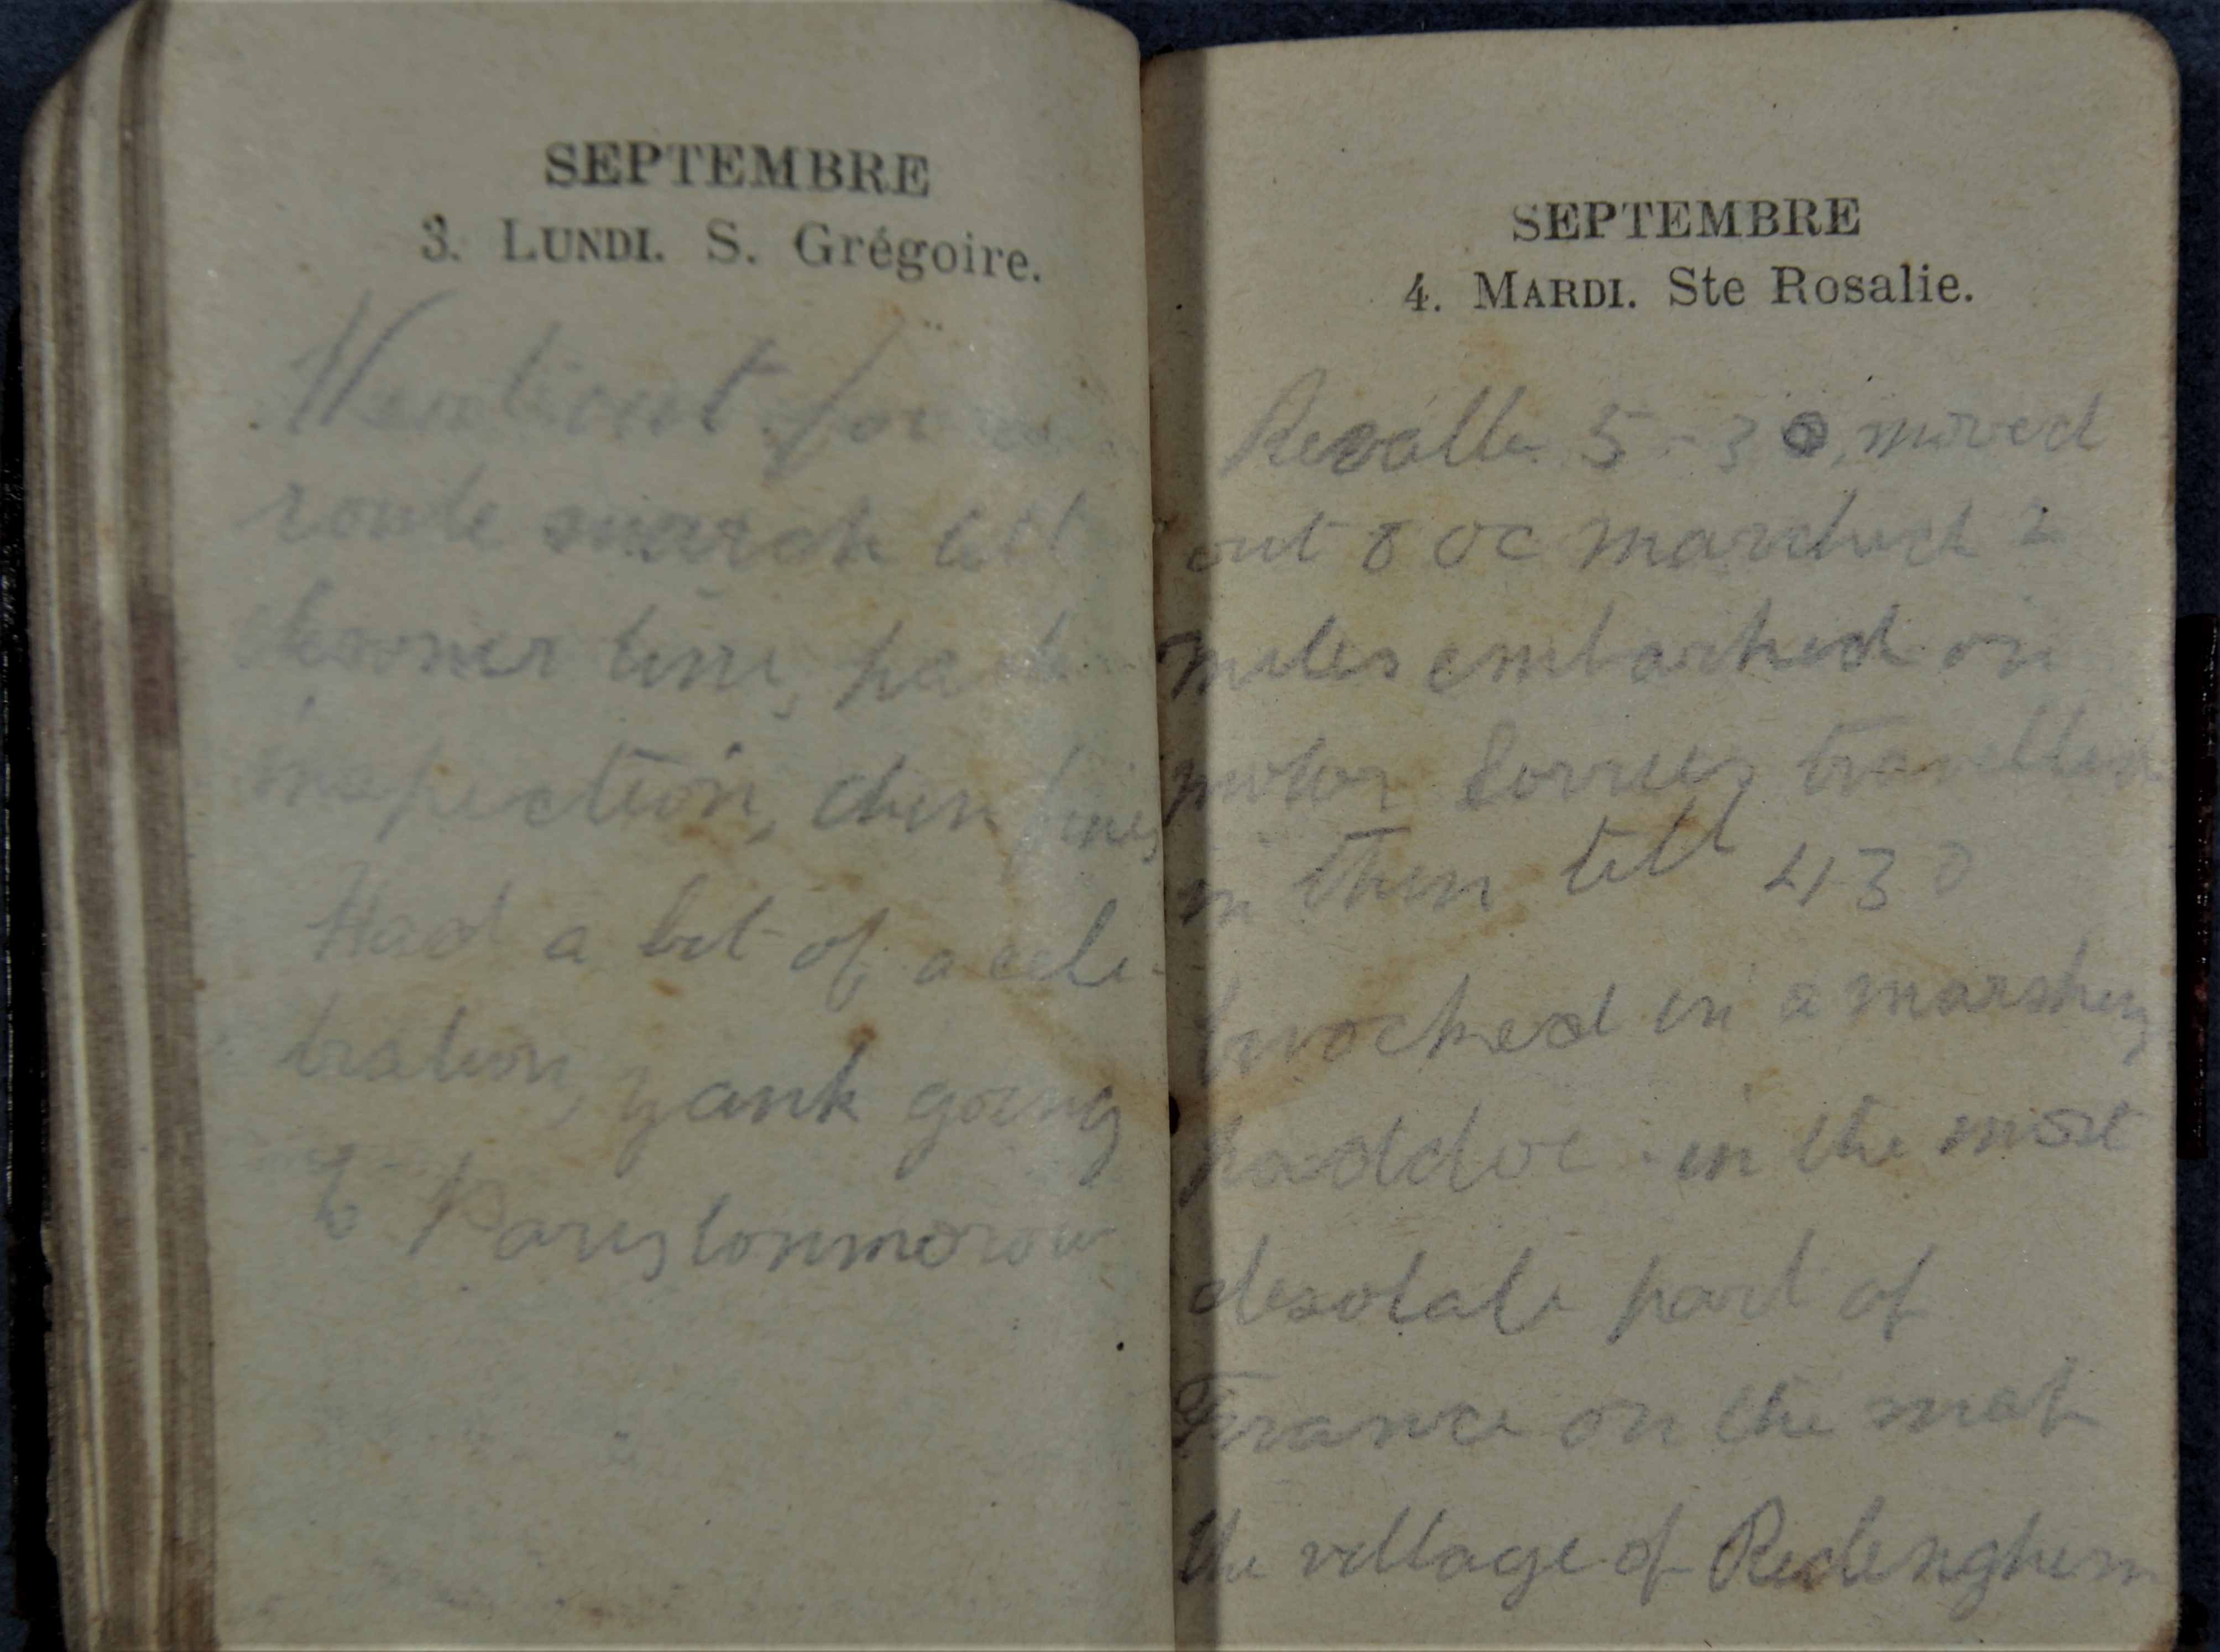 SEPTEMBRE
3. LUNDI. S. Grégoire.
Went out for a
route march till
dinner time, pack
inspection, then fines
Had a bit of a cele-
bration, yank going
to Paris tonmorow
SEPTEMBRE
4. MARDI. Ste Rosalie.
Revalle 5-30, moved
out 8 oc marched 2
miles embarked on
motor lorries travelled
in them till 430
bivocked in a marshey
paddoc - in the most
desolate part of
France on the mat
the village of Redenghem